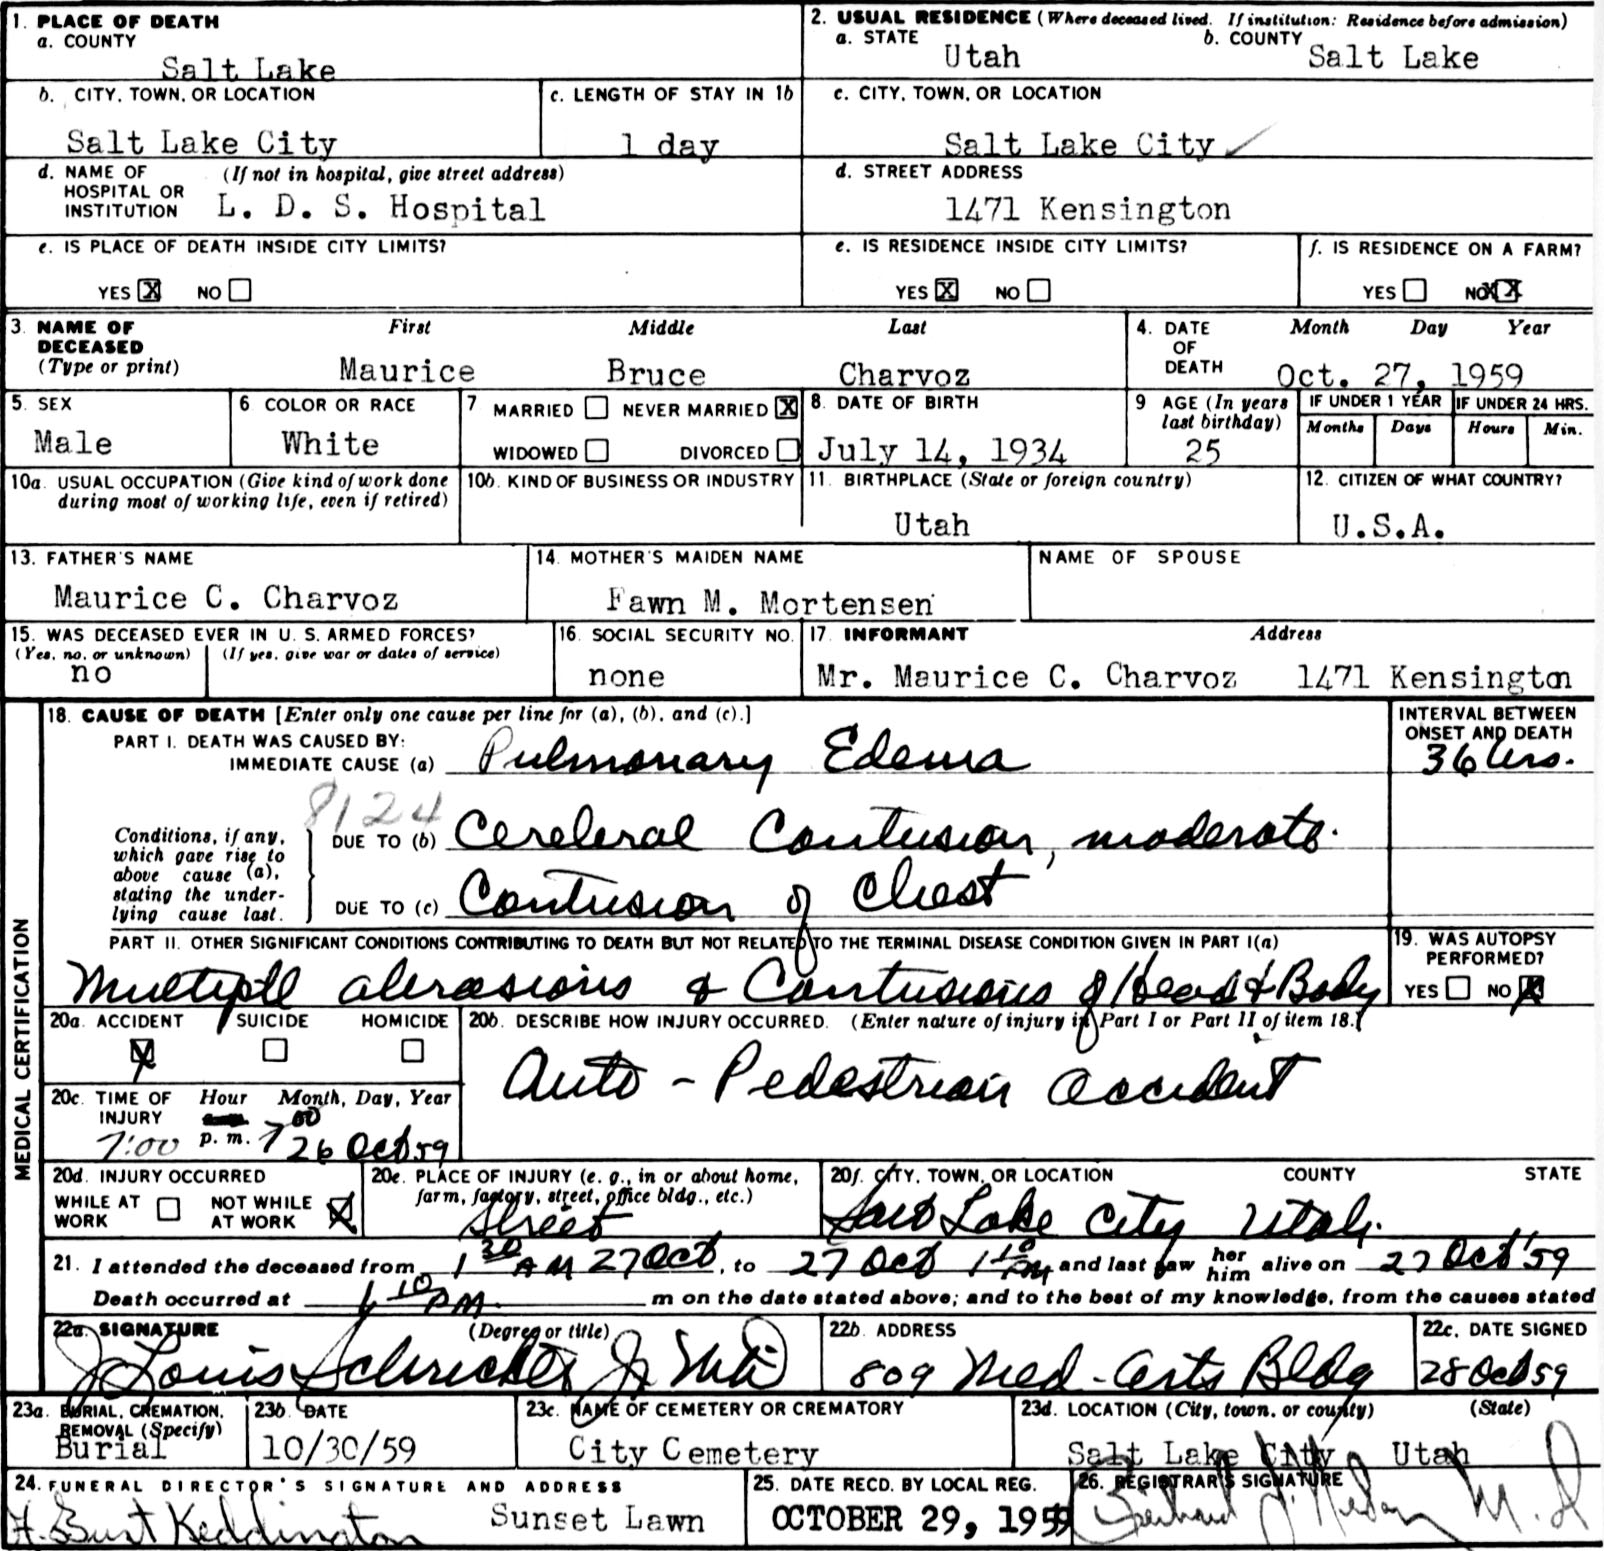 1. PLACE OF DEATH
a. COUNTY
Salt Lake
2. USUAL RESIDENCE (Where deceased lived. If institution: Residence before admission)
a. STATE Utah b. COUNTY Salt Lake
b. CITY, TOWN, OR LOCATION
Salt Lake City
c. LENGTH OF STAY IN 1b
1 day
c. CITY, TOWN, OR LOCATION
Salt Lake City
d. NAME OF HOSPITAL OR INSTITUTION (If not in hospital, give street address)
L. D. S. Hospital
d. STREET ADDRESS
1471 Kensington
e. IS PLACE OF DEATH INSIDE CITY LIMITS?
YES X NO
e. IS RESIDENCE INSIDE CITY LIMITS?
YES X NO
f. IS RESIDENCE ON A FARM?
YES NO X
3. NAME OF DECEASED (Type or print)
First Middle Last
Maurice Bruce Charvoz
4. DATE OF DEATH
Month Day Year
Oct. 27, 1959
5. SEX
Male
6. COLOR OR RACE
White
7. MARRIED NEVER MARRIED X
WIDOWED DIVORCED
8. DATE OF BIRTH
July 14, 1934
9. AGE (In years last birthday)
25
IF UNDER 1 YEAR
Months Days
IF UNDER 24 HRS.
Hours Min.
10a. USUAL OCCUPATION (Give kind of work done during most of working life, even if retired)
10b. KIND OF BUSINESS OR INDUSTRY
11. BIRTHPLACE (State or foreign country)
Utah
12. CITIZEN OF WHAT COUNTRY?
U.S.A.
13. FATHER'S NAME
Maurice C. Charvoz
14. MOTHER'S MAIDEN NAME
Fawn M. Mortensen
NAME OF SPOUSE
15. WAS DECEASED EVER IN U. S. ARMED FORCES?
(Yes, no, or unknown) (If yes, give war or dates of service)
no
16. SOCIAL SECURITY NO.
none
17. INFORMANT Address
Mr. Maurice C. Charvoz 1471 Kensington
MEDICAL CERTIFICATION
18. CAUSE OF DEATH [Enter only one cause per line for (a), (b), and (c).]
INTERVAL BETWEEN ONSET AND DEATH
PART I. DEATH WAS CAUSED BY:
IMMEDIATE CAUSE (a) Pulmonary Edema 36 hrs.
8124
Conditions, if any, which gave rise to above cause (a), stating the underlying cause last.
DUE TO (b) Cerebral Contusion, moderate.
DUE TO (c) Contusion of Chest
PART II. OTHER SIGNIFICANT CONDITIONS CONTRIBUTING TO DEATH BUT NOT RELATED TO THE TERMINAL DISEASE CONDITION GIVEN IN PART I(a)
Multiple abrasions & Contusions of Head & Body
19. WAS AUTOPSY PERFORMED?
YES NO X
20a. ACCIDENT SUICIDE HOMICIDE
X
20b. DESCRIBE HOW INJURY OCCURRED. (Enter nature of injury in Part I or Part II of item 18.)
Auto - Pedestrian accident
20c. TIME OF INJURY
Hour Month, Day, Year
7:00 p. m. 7 00 26 Oct 59
20d. INJURY OCCURRED
WHILE AT WORK NOT WHILE AT WORK X
20e. PLACE OF INJURY (e. g., in or about home, farm, factory, street, office bldg., etc.)
Street
20f. CITY, TOWN, OR LOCATION COUNTY STATE
Salt Lake City Utah.
21. I attended the deceased from 1 30 AM 27 Oct, to 27 Oct 1 10 PM and last saw her him alive on 27 Oct '59
Death occurred at 6 10 PM. m on the date stated above; and to the best of my knowledge, from the causes stated
22a. SIGNATURE (Degree or title)
J Louis Schricker Jr MD
22b. ADDRESS
809 Med-Arts Bldg
22c. DATE SIGNED
28 Oct 59
23a. BURIAL, CREMATION, REMOVAL (Specify)
Burial
23b. DATE
10/30/59
23c. NAME OF CEMETERY OR CREMATORY
City Cemetery
23d. LOCATION (City, town, or county) (State)
Salt Lake City Utah
24. FUNERAL DIRECTOR'S SIGNATURE AND ADDRESS
Burt Keddington Sunset Lawn
25. DATE RECD. BY LOCAL REG.
OCTOBER 29, 1959
26. REGISTRAR'S SIGNATURE
M. D